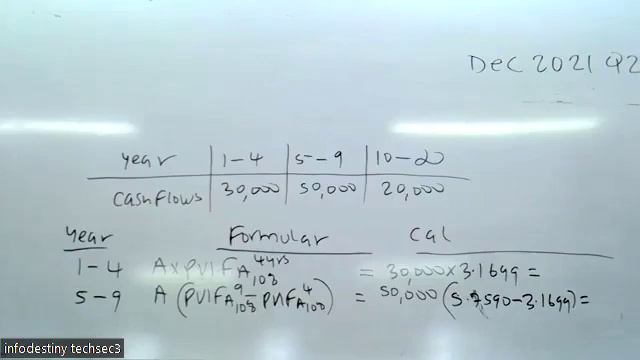 Dec 2021 Q2
Year 1-4 5-9 10-∞
Cashflows 30,000 50,000 20,000
Year Formular Cal
1-4 A x PVIFA 4yrs 10% = 30,000 x 3.1699 =
5-9 A (PVIFA 9 10% - PVIFA 4 10%) = 50,000 (5.7590-3.1699) =
infodestiny techsec3